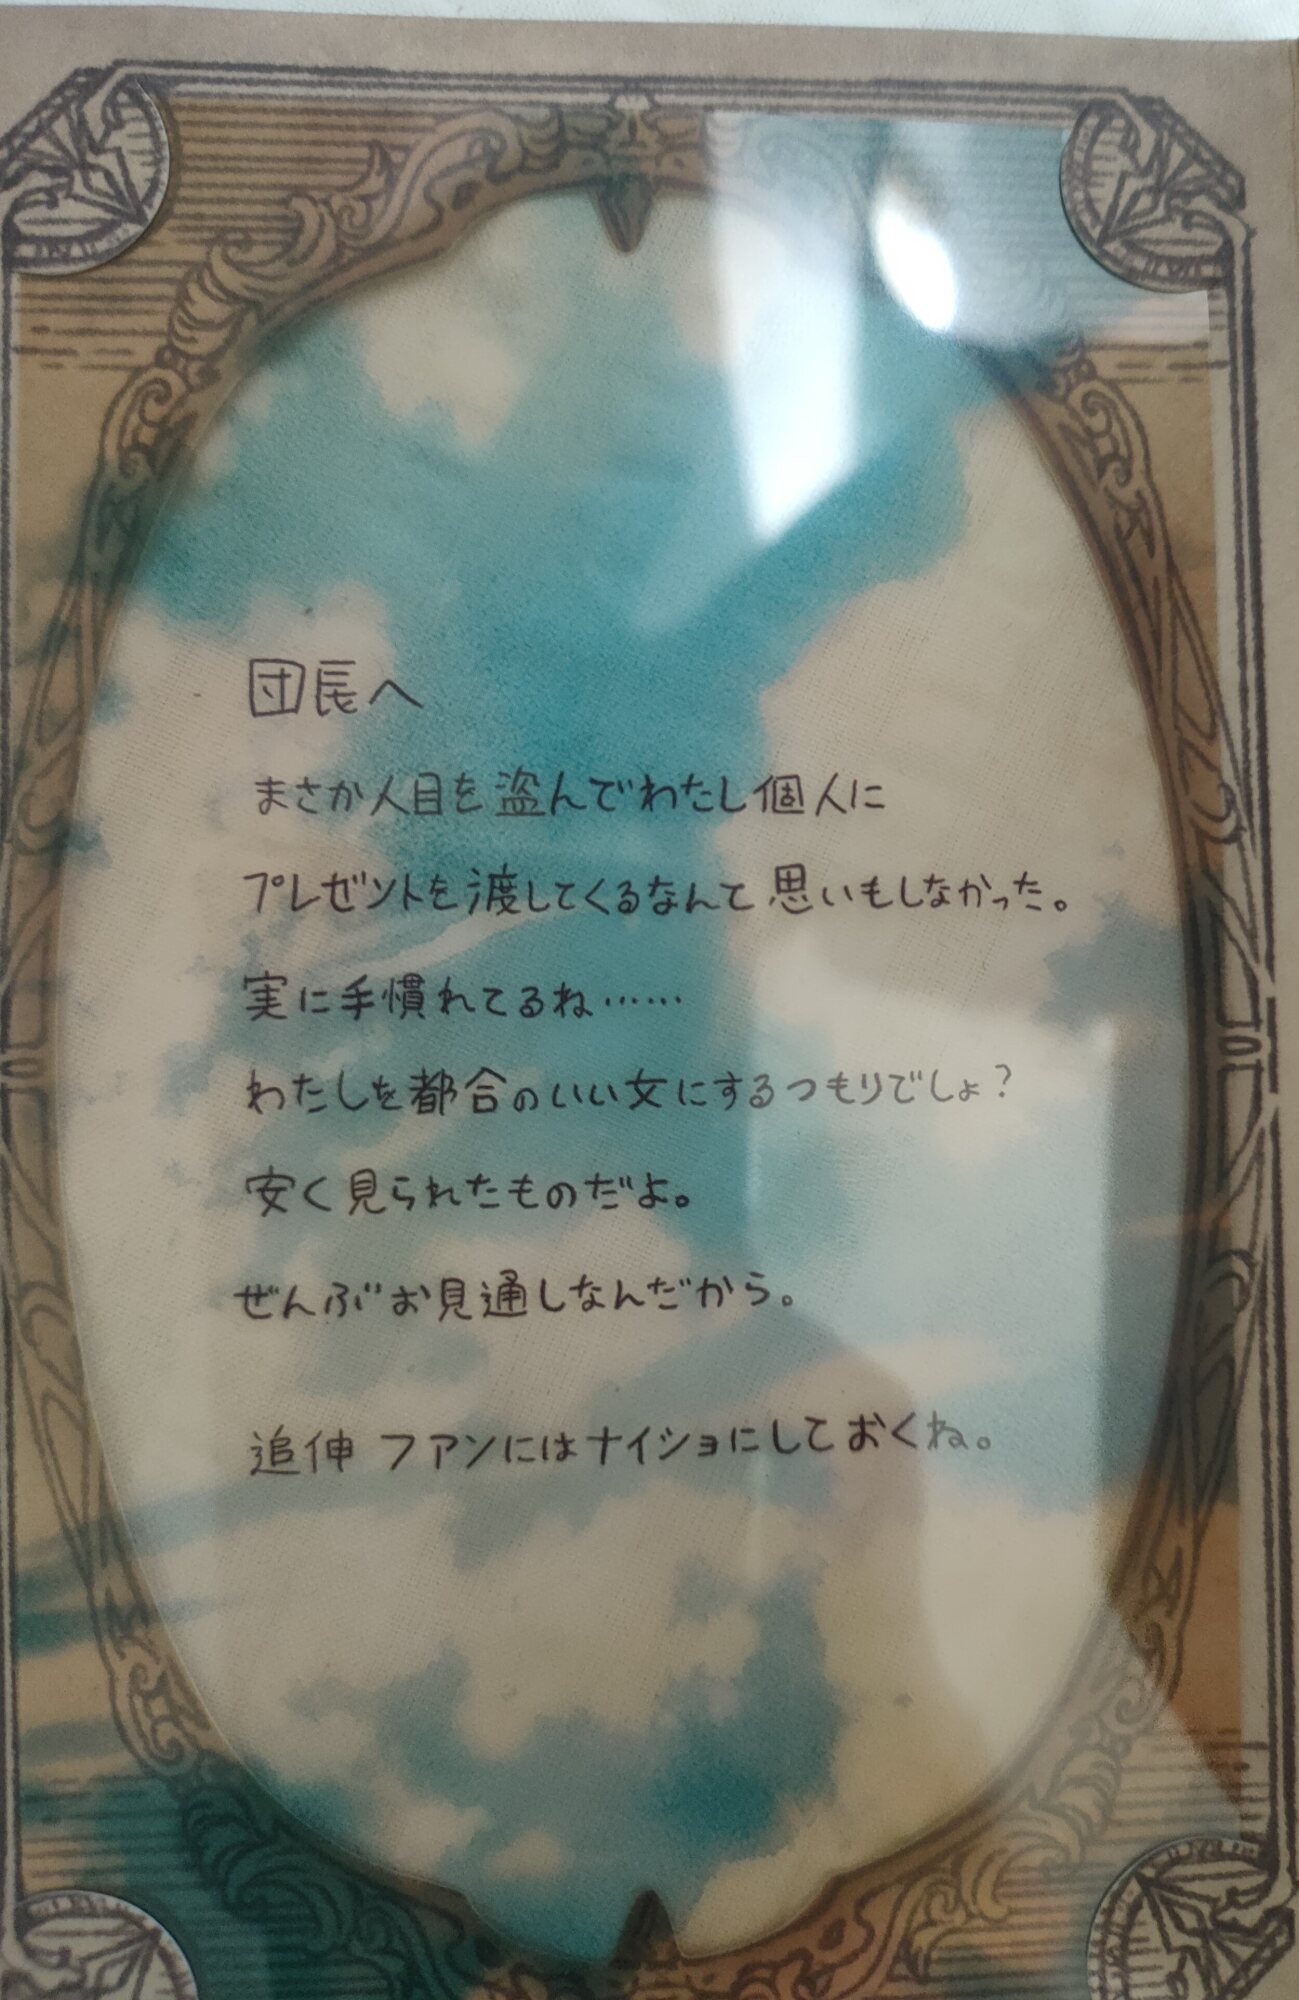 団長へ
まさか人目を盗んでわたし個人に
プレゼントを渡してくるなんて思いもしなかった。
実に手慣れてるね……
わたしを都合のいい女にするつもりでしょ?
安く見られたものだよ。
ぜんぶお見通しなんだから。
追伸 ファンにはナイショにしておくね。